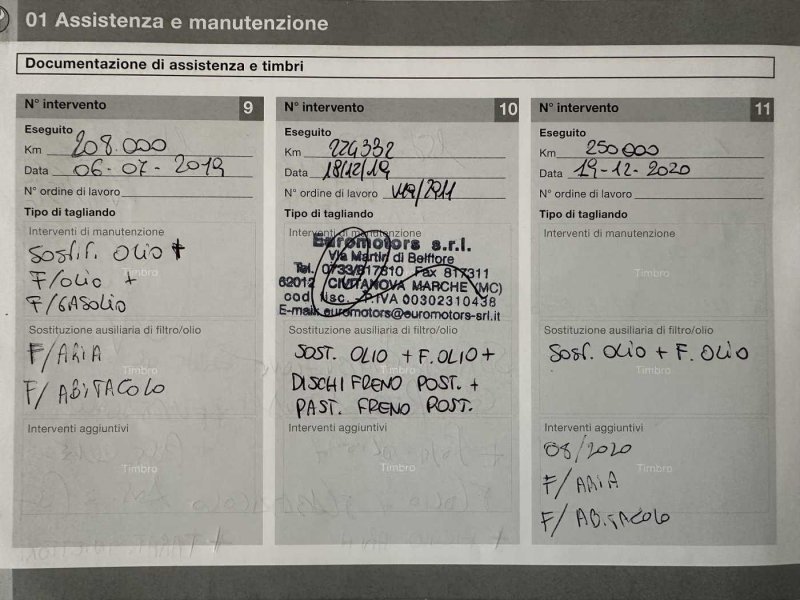 01 Assistenza e manutenzione
Documentazione di assistenza e timbri
N° intervento 9
Eseguito
Km 208.000
Data 06-07-2019
N° ordine di lavoro
Tipo di tagliando
Interventi di manutenzione
SOSTIT. OLIO +
F/OLIO +
Timbro
F/GASOLIO
Sostituzione ausiliaria di filtro/olio
F/ARIA
Timbro
F/ABITACOLO
Interventi aggiuntivi
Timbro
N° intervento 10
Eseguito
Km 224332
Data 18/12/19
N° ordine di lavoro
Tipo di tagliando
Interventi di manutenzione
Euromotors s.r.l.
Via Martiri di Belfiore
Tel. 0733/817810 Fax 817311
62012 CIVITANOVA MARCHE (MC)
cod. fisc. - P.IVA 00302310438
E-mail: euromotors@euromotors-srl.it
Sostituzione ausiliaria di filtro/olio
SOST. OLIO + F. OLIO +
Timbro
DISCHI FRENO POST. +
PAST. FRENO POST.
Interventi aggiuntivi
Timbro
N° intervento 11
Eseguito
Km 250000
Data 19-12-2020
N° ordine di lavoro
Tipo di tagliando
Interventi di manutenzione
Timbro
Sostituzione ausiliaria di filtro/olio
SOST. OLIO + F. OLIO
Timbro
Interventi aggiuntivi
08/2020
Timbro
F/ARIA
F/ABITACOLO